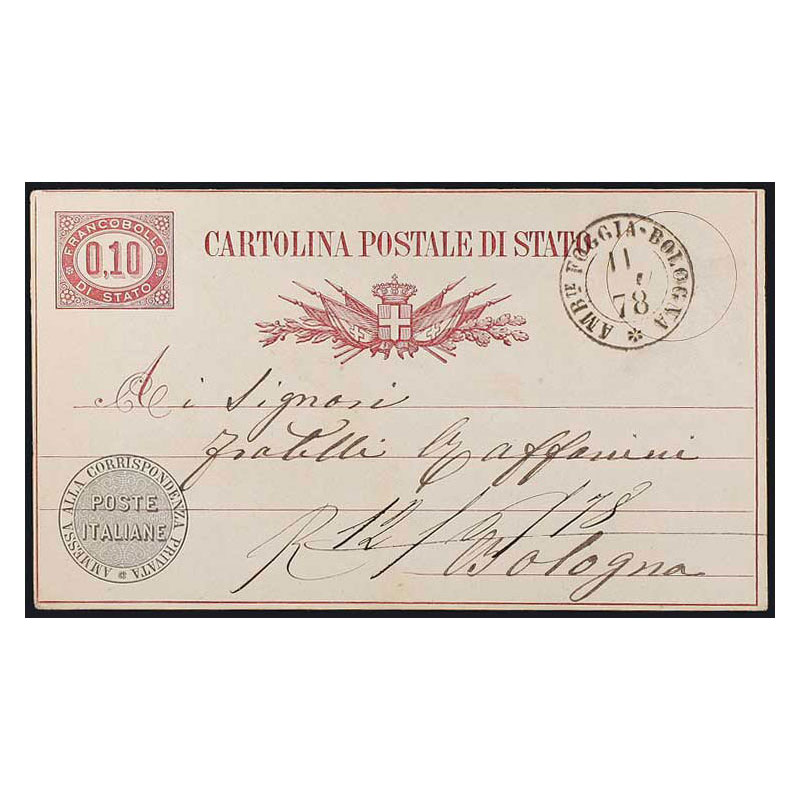 FRANCOBOLLO
0,10
DI STATO
CARTOLINA POSTALE DI STATO
AMBte FOGGIA-BOLOGNA
11
78
Ai Signori
fratelli Zaffarini
AMMESSA ALLA CORRISPONDENZA PRIVATA
POSTE
ITALIANE
R 12/ /78
Bologna